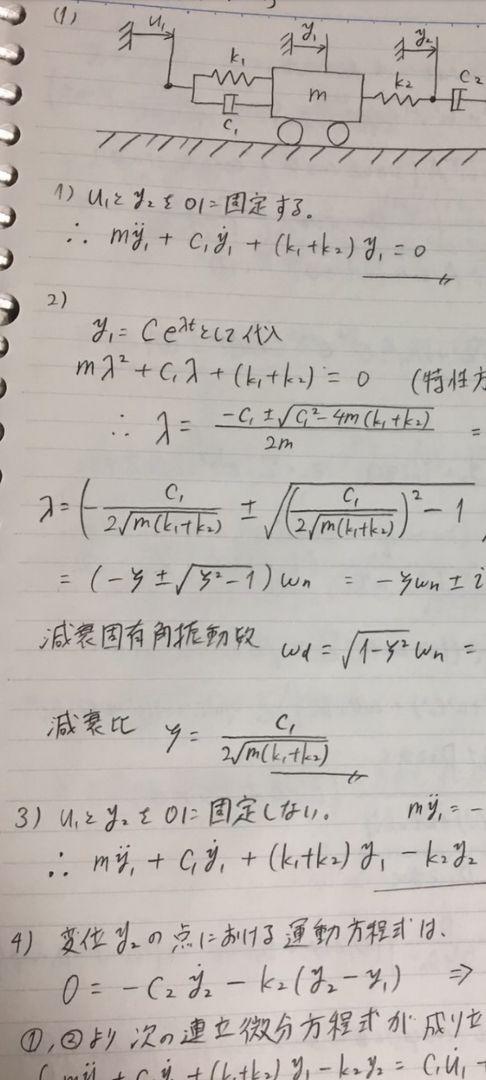 (1)
u₁ y₁ y₂
k₁ m k₂ C₂
C₁
1) u₁と y₂を 0に固定する。
∴ mÿ₁ + C₁ẏ₁ + (k₁+k₂) y₁ = 0
2)
y₁ = C e^{λt}として代入
mλ² + C₁λ + (k₁+k₂) = 0 (特性方
∴ λ = \frac{-C₁ ± \sqrt{C₁² - 4m(k₁+k₂)}}{2m} =
λ = (-\frac{C₁}{2\sqrt{m(k₁+k₂)}} ± \sqrt{(\frac{C₁}{2\sqrt{m(k₁+k₂)}})² - 1}
= (-ζ ± \sqrt{ζ²-1}) ωn = -ζωn ± i
減衰固有角振動数 ωd = \sqrt{1-ζ²} ωn =
減衰比 ζ = \frac{C₁}{2\sqrt{m(k₁+k₂)}}
3) u₁と y₂を 0に固定しない。 mÿ₁ = -
∴ mÿ₁ + C₁ẏ₁ + (k₁+k₂) y₁ - k₂y₂
4) 変位 y₂の点における運動方程式は、
0 = -C₂ẏ₂ - k₂(y₂-y₁) ⇒
①,②より次の連立微分方程式が成り立
mÿ₁ + C₁ẏ₁ + (k₁+k₂) y₁ - k₂y₂ = C₁u̇₁ +